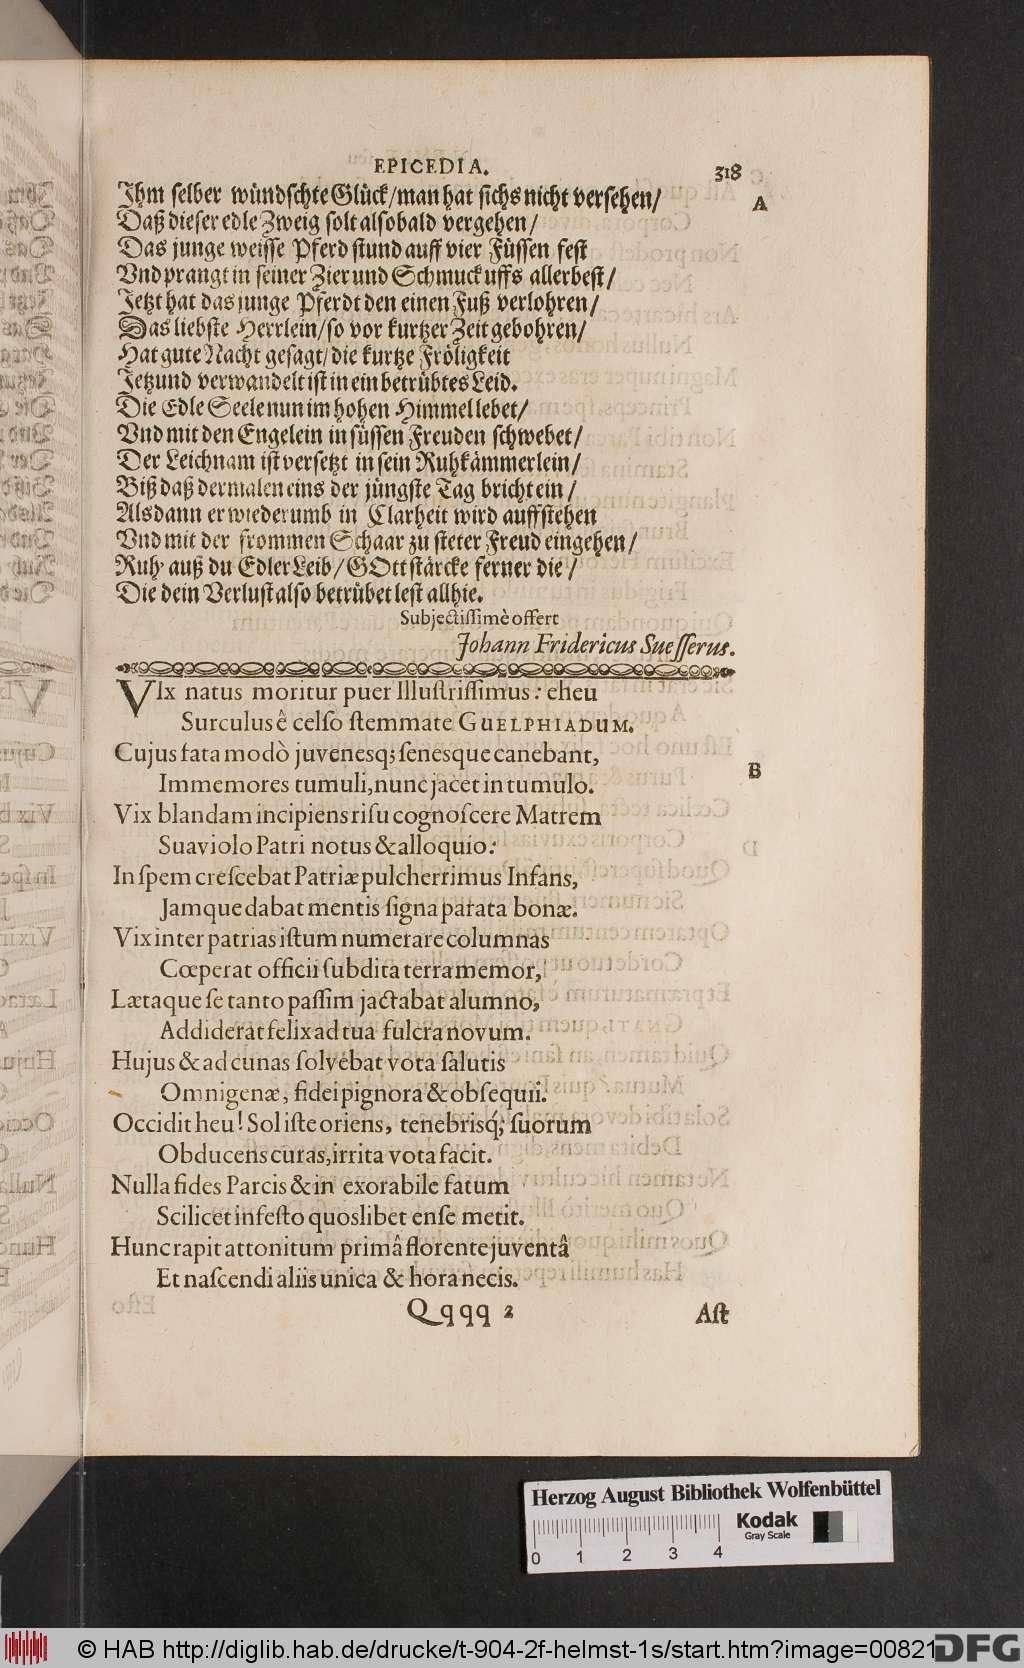 EPICEDIA. 318
Ihm selber wündschte Glück/man hat sichs nicht versehen/
A
Daß dieser edle Zweig solt alsobald vergehen/
Das junge weisse Pferd stund auff vier Füssen fest
Vnd prangt in seiner Zier und Schmuck uffs allerbest/
Jetzt hat das junge Pferdt den einen Fuß verlohren/
Das liebste Herrlein/so vor kurtzer Zeit gebohren/
Hat gute Nacht gesagt/die kurtze Fröligkeit
Jetzund verwandelt ist in ein betrübtes Leid.
Die Edle Seele nun im hohen Himmel lebet/
Vnd mit den Engelein in süssen Freuden schwebet/
Der Leichnam ist versetzt in sein Ruhkämmerlein/
Biß daß dermalen eins der jüngste Tag bricht ein/
Alsdann er wiederumb in Clarheit wird auffstehen
Vnd mit der frommen Schaar zu steter Freud eingehen/
Ruh auß du Edler Leib/GOtt stärcke ferner die/
Die dein Verlust also betrübet lest allhie.
Subjectiſſimè offert
Johann Fridericus Sueſſerus.
VIx natus moritur puer Illuſtriſſimus: eheu
Surculus ê celſo ſtemmate GUELPHIADUM.
Cujus fata modò juvenesq; ſenesque canebant,
Immemores tumuli, nunc jacet in tumulo.
B
Vix blandam incipiens riſu cognoſcere Matrem
Suaviolo Patri notus & alloquio:
In ſpem creſcebat Patriæ pulcherrimus Infans,
Jamque dabat mentis ſigna parata bonæ.
Vix inter patrias iſtum numerare columnas
Cœperat officii ſubdita terra memor,
Lætaque ſe tanto paſſim jactabat alumno,
Addiderat felix ad tua fulcra novum.
Hujus & ad cunas ſolvebat vota ſalutis
Omnigenæ, fidei pignora & obſequii.
Occidit heu! Sol iſte oriens, tenebrisq́; ſuorum
Obducens curas, irrita vota facit.
Nulla fides Parcis & in exorabile fatum
Scilicet infeſto quoslibet enſe metit.
Hunc rapit attonitum primâ florente juventâ
Et naſcendi aliis unica & hora necis.
Qqqq 2 Aſt
Herzog August Bibliothek Wolfenbüttel
Kodak
Gray Scale
0 1 2 3 4
© HAB http://diglib.hab.de/drucke/t-904-2f-helmst-1s/start.htm?image=00821
DFG